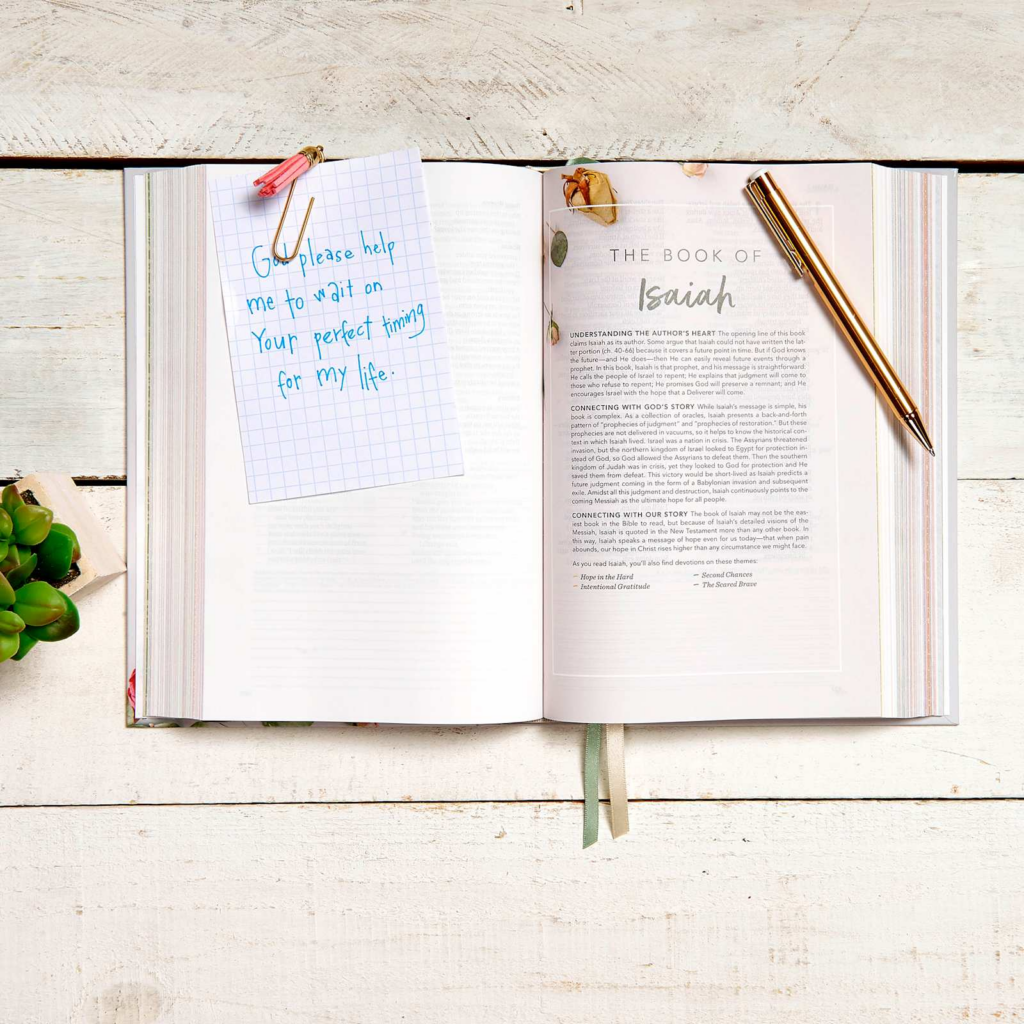 God please help
me to wait on
Your perfect timing
for my life.
THE BOOK OF
Isaiah
UNDERSTANDING THE AUTHOR'S HEART The opening line of this book
claims Isaiah as its author. Some argue that Isaiah could not have written the lat-
ter portion (ch. 40–66) because it covers a future point in time. But if God knows
the future—and He does—then He can easily reveal future events through a
prophet. In this book, Isaiah is that prophet, and his message is straightforward.
He calls the people of Israel to repent; He explains that judgment will come to
those who refuse to repent; He promises God will preserve a remnant; and He
encourages Israel with the hope that a Deliverer will come.
CONNECTING WITH GOD'S STORY While Isaiah's message is simple, his
book is complex. As a collection of oracles, Isaiah presents a back-and-forth
pattern of "prophecies of judgment" and "prophecies of restoration." But these
prophecies are not delivered in vacuums, so it helps to know the historical con-
text in which Isaiah lived. Israel was a nation in crisis. The Assyrians threatened
invasion, but the northern kingdom of Israel looked to Egypt for protection in-
stead of God, so God allowed the Assyrians to defeat them. Then the southern
kingdom of Judah was in crisis, yet they looked to God for protection and He
saved them from defeat. This victory would be short-lived as Isaiah predicts a
future judgment coming in the form of a Babylonian invasion and subsequent
exile. Amidst all this judgment and destruction, Isaiah continuously points to the
coming Messiah as the ultimate hope for all people.
CONNECTING WITH OUR STORY The book of Isaiah may not be the eas-
iest book in the Bible to read, but because of Isaiah's detailed visions of the
Messiah, Isaiah is quoted in the New Testament more than any other book. In
this way, Isaiah speaks a message of hope even for us today—that when pain
abounds, our hope in Christ rises higher than any circumstance we might face.
As you read Isaiah, you'll also find devotions on these themes:
— Hope in the Hard
— Intentional Gratitude
— Second Chances
— The Scared Brave